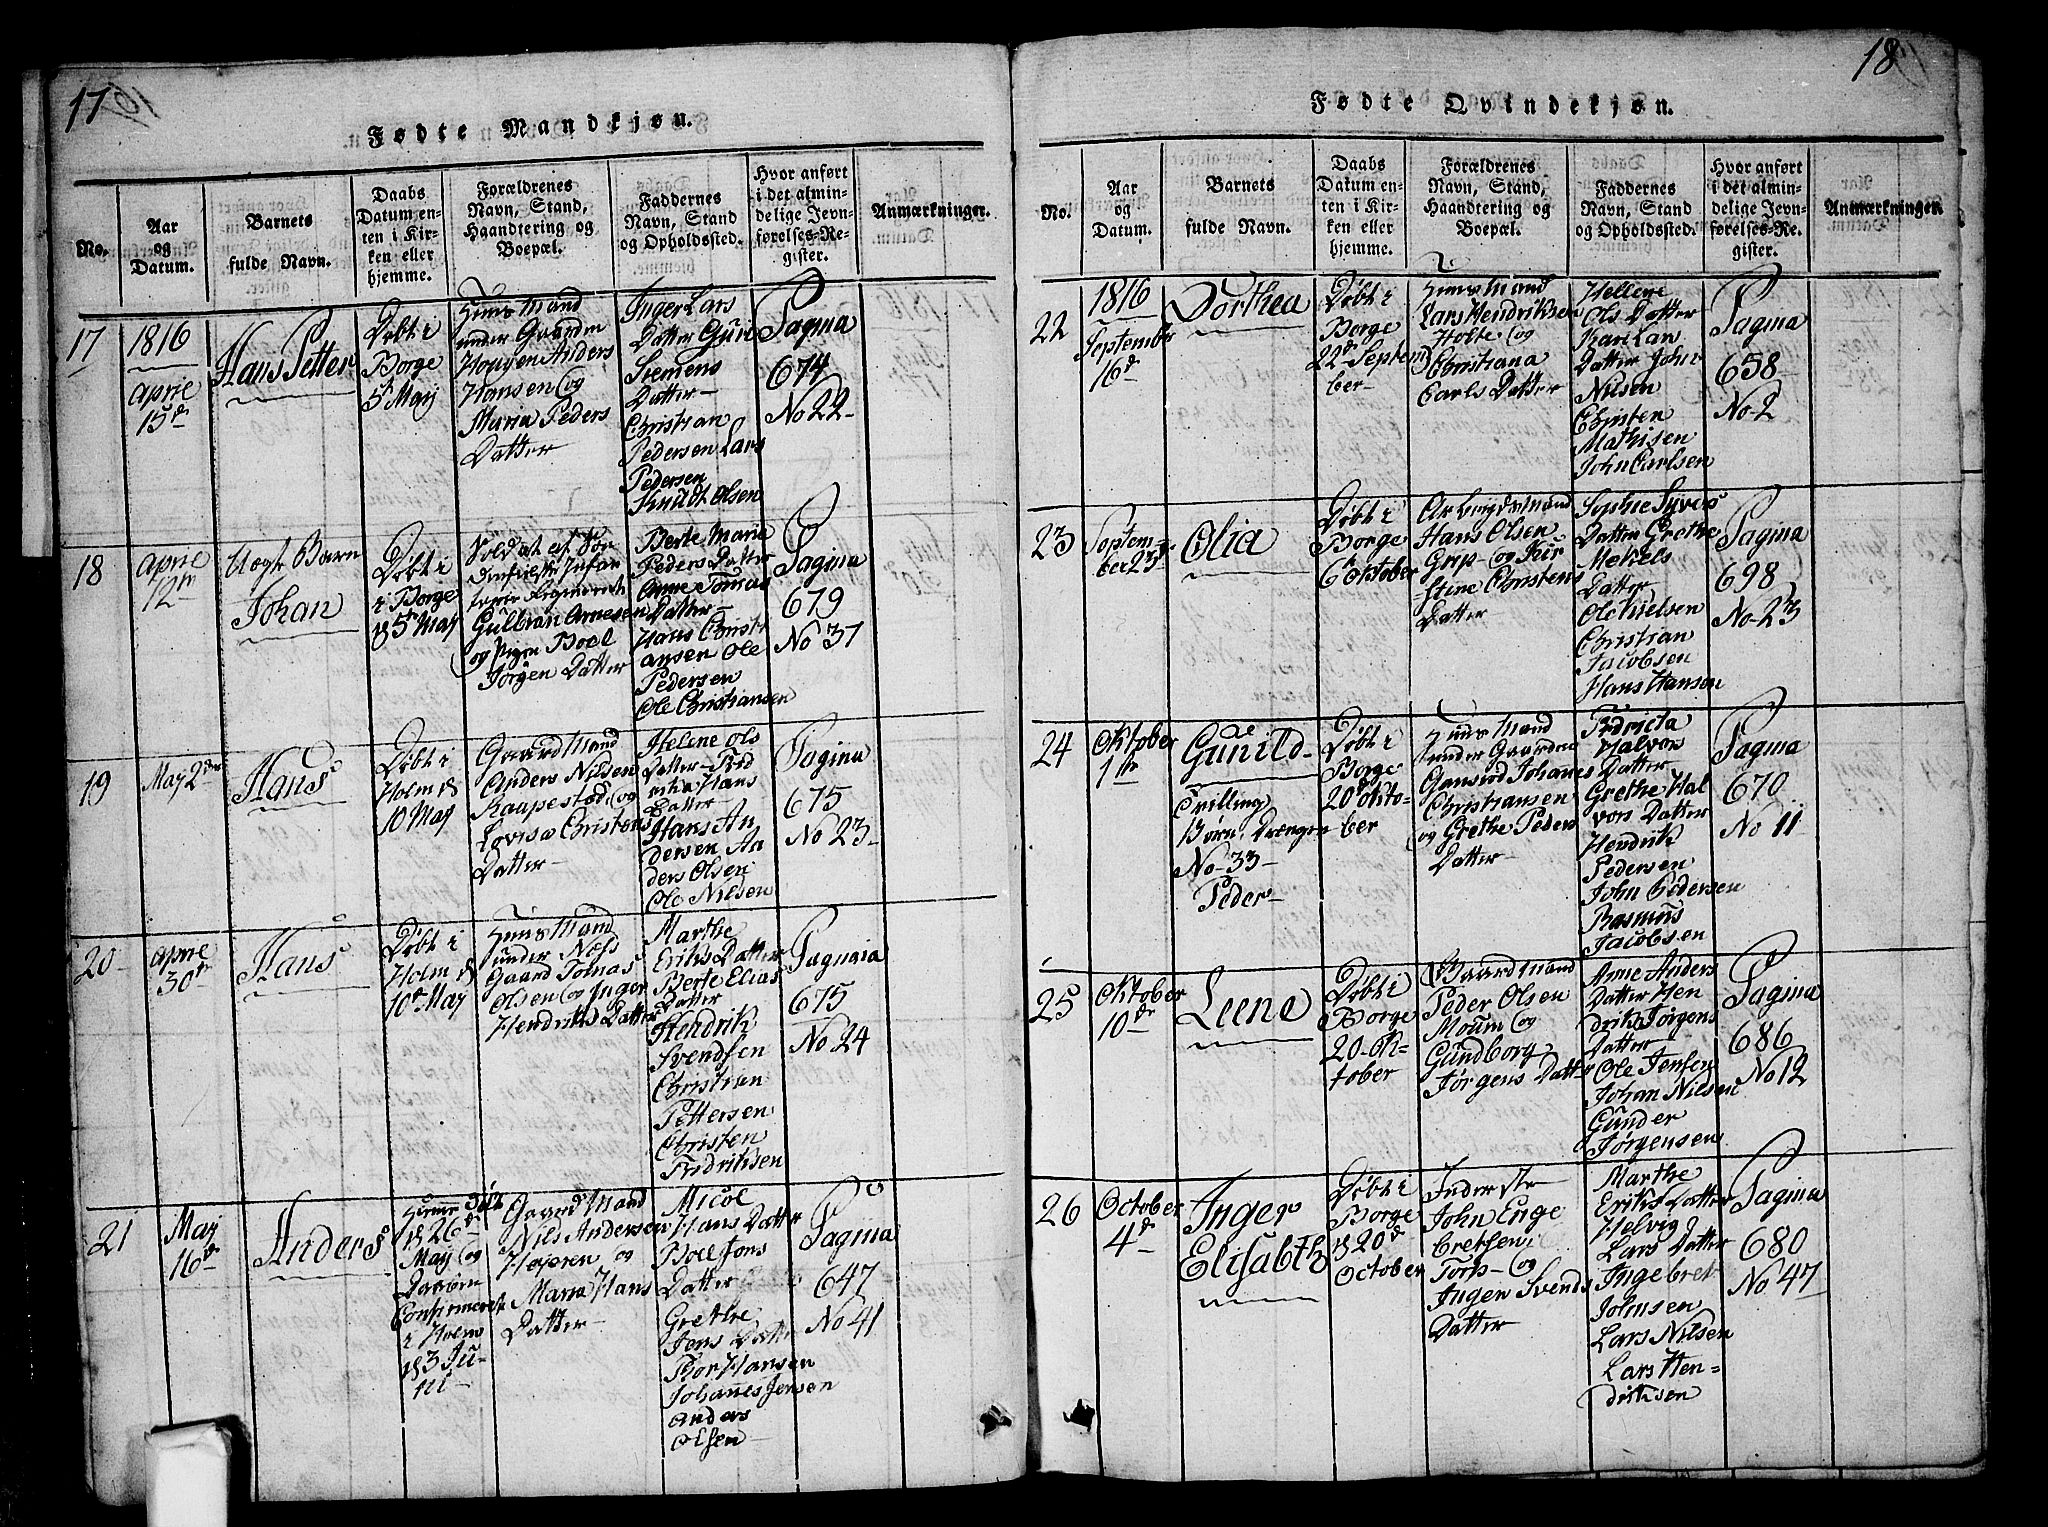 17
Fødte Mandkjøn.
No.
Aar
og
Datum.
Barnets
fulde Navn.
Daabs
Datum en-
ten i Kir-
ken eller
hjemme.
Forældrenes
Navn, Stand,
Haandtering og
Boepæl.
Faddernes
Navn, Stand
og Opholdssted.
Hvor anført
i det almin-
delige Jevn-
førelses-Re-
gister.
Anmærkninger.
17
1816
Aprie
15de
Hans Petter
Døbt i
Borge
5te Maj
Huus Mand
under Gaarden
Hougen Anders
Hansen og
Maria Peders
Datter
Inger Lars
Datter Gun
Siemens
Datter
Christian
Pedersen Lars
Pedersen
Knudt Olsen
Pagina
674
No 22
18
Aprie
12te
Uægte Barn
Johan
Døbt i
i Borge
d 5te Maj
Soldat af
Regimente
Gulbran Arnesen
og Pigen Boel
Jørgen Datter
Berte Marie
Peders Datter
Anne Tomas
Datter
Hans Christi
ansen Ole
Pedersen
Ole Christiansen
Pagina
679
No 37
19
May 2den
Hans
Døbt i
Holm d
10 Maj
Gaard Mand
Anders Nilsen
Raapestad og
Lovisa Christens
Datter
Helene Ols
Datter Frid
rika Hans
Datter
Hans An
dersen An
ders Olsen
Ole Nilsen
Pagina
675
No 23
20
Aprie
30te
Hans
Døbt i
Holm d
10de Maj
Huus Mand
under Næss
Gaard Tomas
Olsen og Inger
Hendriks Datter
Marthe
Eriks Datter
Berte Elias
Datter
Hendrik
Svendsen
Christian
Pettersen
Christen
Fridriksen
Pagina
675
No 24
21
Maj
16de
Anders
Hiemme Døbt
d 26de
Maj og
Daaben
Confirmeret
i Holm
d 3 Ju-
ni
Gaard Mand
Nils Andersen
Højeren og
Maria Hans
Datter
Micol
Hans Datter
Boel Jons
Datter
Grethe
Jens Datter
Tor Hansen
Johannes Jensen
Anders
Olsen
Pagina
647
No 41
18
Fødte Qvindekjøn.
No.
Aar
og
Datum.
Barnets
fulde Navn.
Daabs
Datum en-
ten i Kir-
ken eller
hjemme.
Forældrenes
Navn, Stand,
Haandtering og
Boepæl.
Faddernes
Navn, Stand
og Opholdssted.
Hvor anført
i det almin-
delige Jevn-
førelses-Re-
gister.
Anmærkninger
22
1816
September
16de
Dorthea
Døbt i
Borge
22de Septem
ber
Huus Mand
Lars Hendriksen
Holte og
Christiana
Carls Datter
Hellene
Ols Datter
Kari Lars
Datter John
Nilsen
Christen
Mathisen
John Carlsen
Pagina
658
No 2
23
Septem-
ber 23de
Olia
Døbt i
Borge
6te Oktober
Arbeyds Mand
Hans Olsen
Grip og Kir
stine Christens
Datter
Sophie Syvers
Datter Grethe
Mekels
Datter
Ole Nielsen
Christian
Jacobsen
Hans Hansen
Pagina
698
No 23
24
Oktober
1ste
Gunild
Tvilling
Børn, Drængen
No 33
Peder
Døbt i
Borge
20de Okto-
ber
Huus Mand
under Gaarden
Gansrød Johanes
Christiansen
og Grethe Peders
Datter
Fridricta
Halvors
Datter
Grethe Hal
vors Datter
Hendrik
Pedersen
John Pedersen
Rasmus
Jacobsen
Pagina
670
No 11
25
Oktober
10de
Leene
Døbt i
Borge
20 Ok-
tober
Gaard Mand
Peder Olsen
Moum og
Gundborg
Jørgens Datter
Anne Anders
Datter Hen
driks Jørgens
Datter
Ole Jensen
Johan Nilsen
Gunder
Jørgensen
Pagina
686
No 12
26
October
4de
Inger
Elisabeth
Døbt i
Borge
d 20de
October
Inderste
John Enge
bretsen i
Torp og
Ingen Svends
Datter
Marthe
Eriks Datter
Helvig
Lars Datter
Ingebret
Johnsen
Lars Nilsen
Lars Hen-
driksen
Pagina
680
No 47